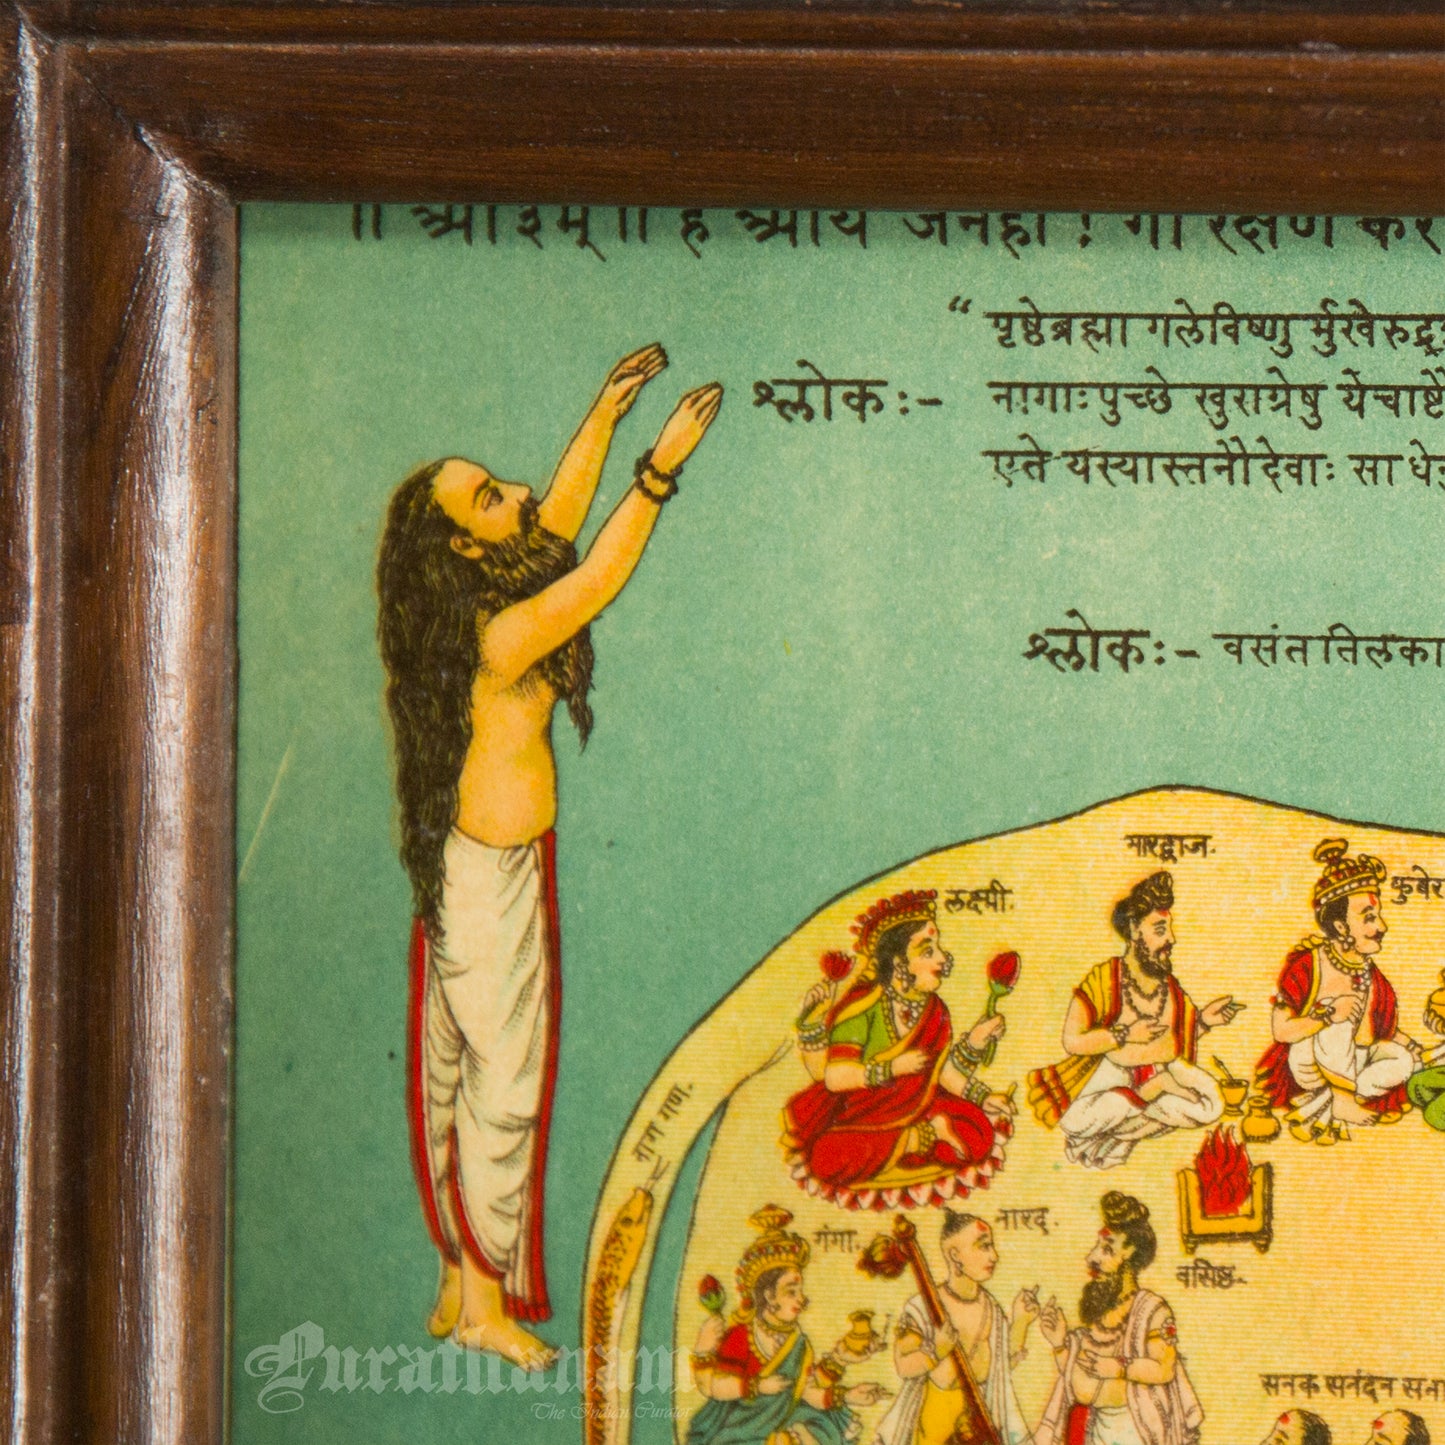 ॥ ओ३म् ॥ हे आर्य जनहो ! गो रक्षण कर
“ पृष्ठेब्रह्मा गलेविष्णु र्मुखेरुद्रः
श्लोकः- नागाःपुच्छे खुराग्रेषु येचाष्टौ
एते यस्यास्तनौदेवाः सा धे
श्लोकः- वसंततिलका
भारद्वाज.
लक्ष्मी.
कुबेर
नाग गण.
नारद.
गंगा.
वसिष्ठ.
सनक सनंदन सना
Purathanam
The Indian Curator